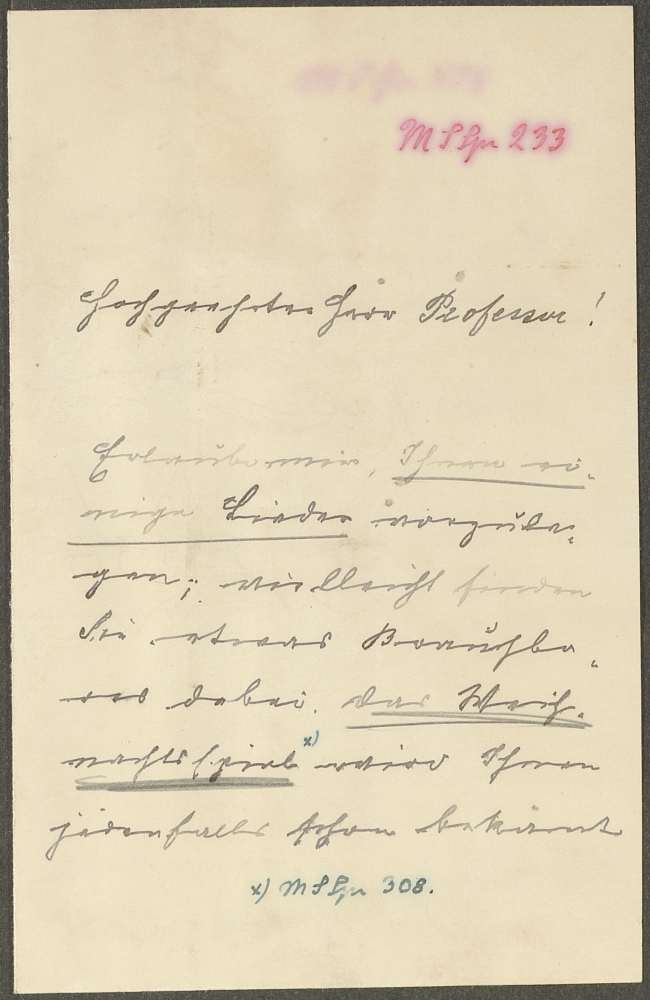 M S Lpr 233
Hochgeehrter Herr Professor!
Erlaube mir, Ihnen ei-
nige Lieder vorzule-
gen; vielleicht finden
Sie etwas Brauchba-
res dabei. Das Weih-
nachtsspiel x) wird Ihnen
jedenfalls schon bekannt
x) M S Lpr 308.